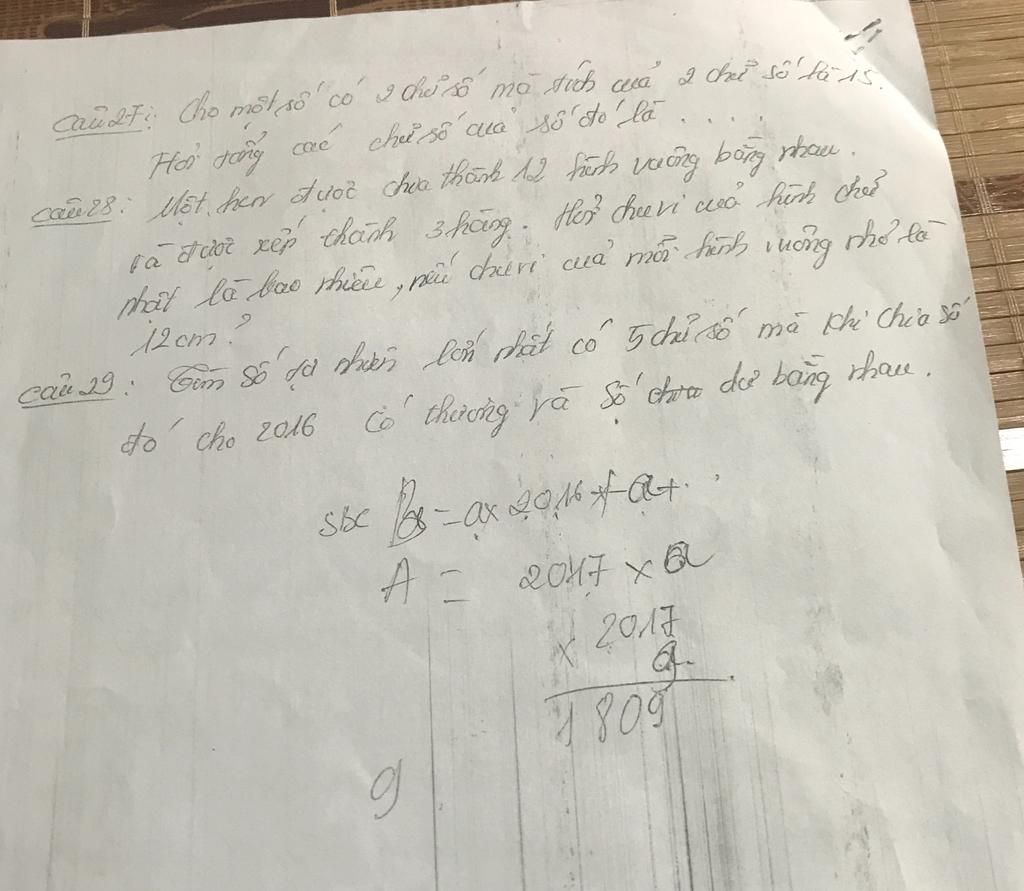 Câu 27: Cho một số có 2 chữ số mà tích của 2 chữ số là 15.
Hỏi tổng các chữ số của số đó là . . . .
Câu 28: Một hcn được chia thành 12 hình vuông bằng nhau.
và được xếp thành 3 hàng. Hỏi chu vi của hình chữ
nhật là bao nhiêu, nếu chu vi của mỗi hình vuông nhỏ là
12cm?
Câu 29: Tìm số tự nhiên lớn nhất có 5 chữ số mà khi chia số
đó cho 2016 có thương và số dư bằng nhau.
SBC = a x 2016 + a
A = 2017 x a
x 2017
1809
9